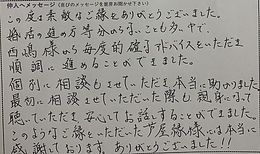 仲人へメッセージ（喜びのメッセージを是非お聞かせ下さい）
この度は素敵なご縁をありがとうございました。
婚活の進め方等分からないことも多い中で、
西嶋様から毎度的確なアドバイスをいただき
順調に進めることができました。
個別に相談もさせていただき本当に助かりました。
最初に相談させていただいた際も親身になって
聴いていただき、安心してお話しすることができました。
このようなご縁をいただいた芦屋縁様には本当に
感謝しております。ありがとうございました！！